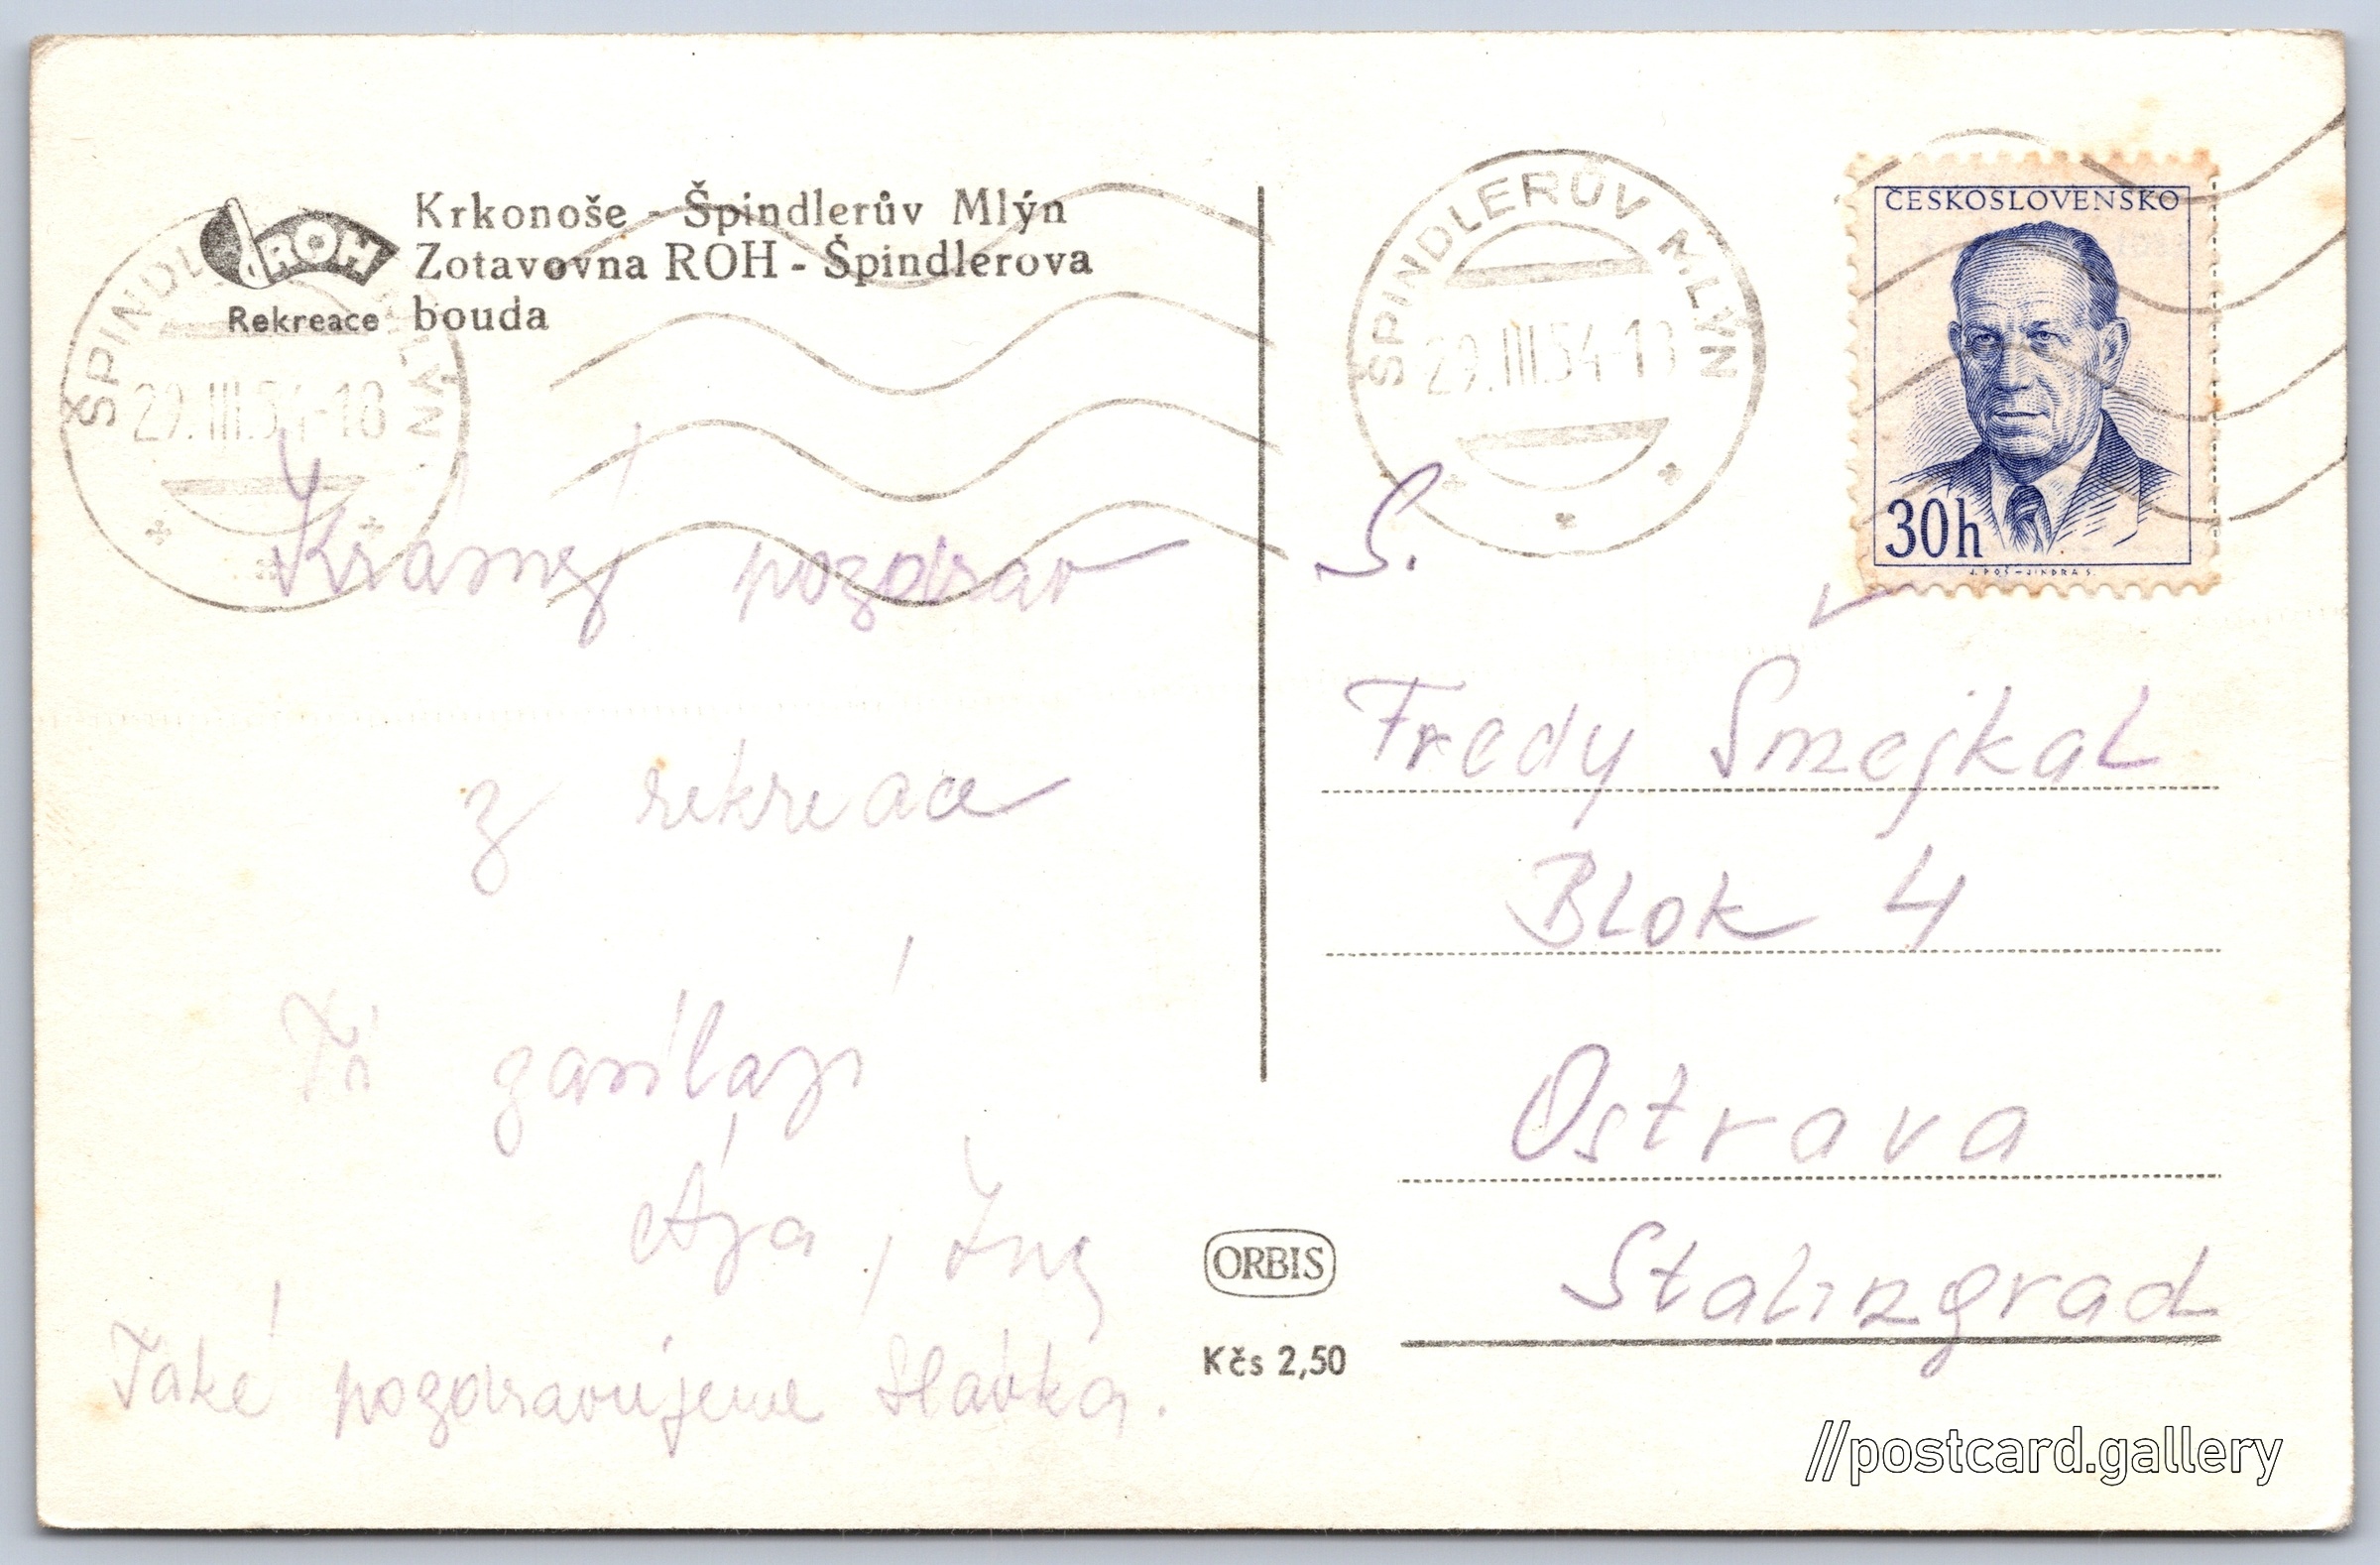 ROH
Rekreace
Krkonoše - Špindlerův Mlýn
Zotavovna ROH - Špindlerova
bouda
ŠPINDL MLÝN
29.III.54-18
ŠPINDLERŮV MLÝN
29.III.54-18
ČESKOSLOVENSKO
30h
J. POŠ - JINDRA S.
Krásný pozdrav
z rekreace
Ti zasílají
Ája, 
Také pozdravujeme Slávka.
S.
Fredy Šmejkal
Blok 4
Ostrava
Stalingrad
ORBIS
Kčs 2,50
//postcard.gallery